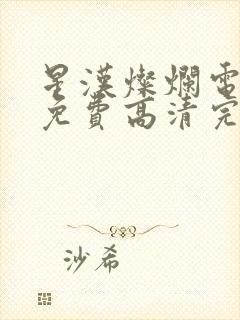 星漢燦爛電
免費高清完
沙希